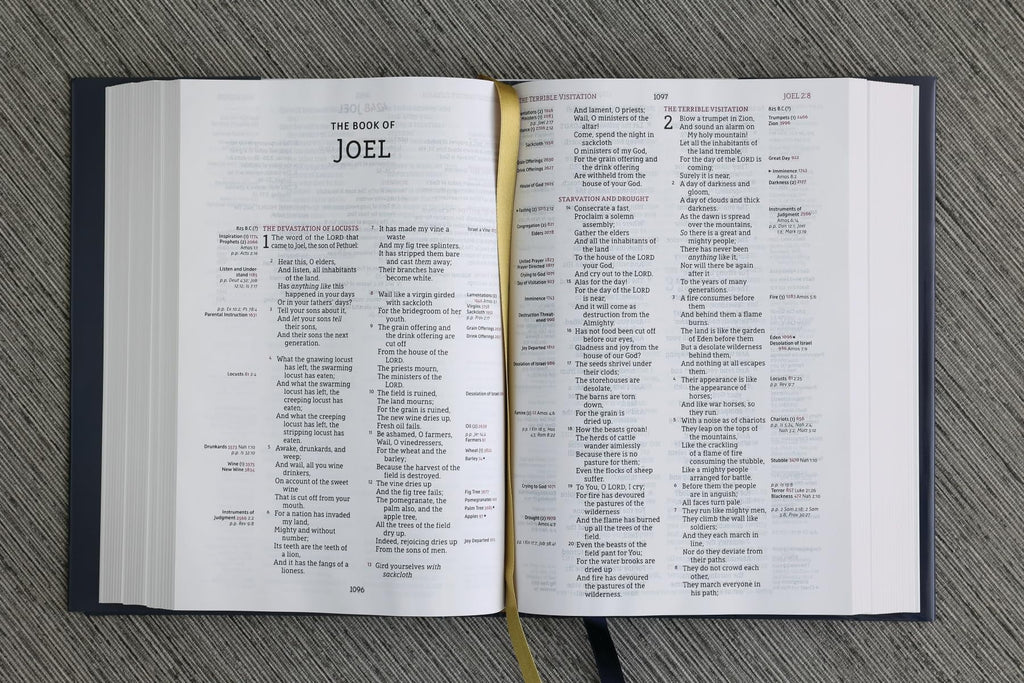 THE BOOK OF
JOEL
825 B.C (?)
Inspiration (1) 1774
Prophets (2) 2066
Amos 1:1
p.p. Acts 2:16
Listen and Under
stand 1185
Parental Instruction 1631
Locusts
Drunkards
Wine (1) 1575
New Wine 1834
Instruments of
THE DEVASTATION OF LOCUSTS
1 The word of the LORD that
came to Joel, the son of Pethuel:
2 Hear this, O elders,
And listen, all inhabitants
of the land.
Has anything like this
happened in your days
Or in your fathers' days?
3 Tell your sons about it,
And let your sons tell
their sons,
And their sons the next
generation.
4 What the gnawing locust
has left, the swarming
locust has eaten;
And what the swarming
locust has left, the
creeping locust has
eaten;
And what the creeping
locust has left, the
stripping locust has
eaten.
5 Awake, drunkards, and
weep,
And wail, all you wine
drinkers,
On account of the sweet
wine
That is cut off from your
mouth.
6 For a nation has invaded
my land,
Mighty and without
number;
Its teeth are the teeth of
a lion,
And it has the fangs of a
lioness.
7 It has made my vine a
waste
And my fig tree splinters.
It has stripped them bare
and cast them away;
Their branches have
become white.
8 Wail like a virgin girded
with sackcloth
For the bridegroom of her
youth.
9 The grain offering and
the drink offering are
cut off
From the house of the
LORD.
The priests mourn,
The ministers of the
LORD.
10 The field is ruined,
The land mourns;
For the grain is ruined,
The new wine dries up,
Fresh oil fails.
11 Be ashamed, O farmers,
Wail, O vinedressers,
For the wheat and the
barley;
Because the harvest of the
field is destroyed.
12 The vine dries up
And the fig tree fails;
The pomegranate, the
palm also, and the
apple tree,
All the trees of the field
dry up.
Indeed, rejoicing dries up
From the sons of men.
13 Gird yourselves with
sackcloth
Grain Offerings
Drink Offerings
Farmers
Barley
Fig Tree
Pomegranates
Palm Tree
Apples
Joy Departed
1096
THE TERRIBLE VISITATION
1097
JOEL 2:8
Sackcloth
Grain Offerings
Drink Offerings
House of God
Congregation (1)
Elders
United Prayer
Prayer Directed
Crying to God
Day of Visitation
Imminence
Destruction Threat-
ened
Joy Departed
Desolation of Israel
Crying to God
Drought (2)
And lament, O priests;
Wail, O ministers of the
altar!
Come, spend the night in
sackcloth
O ministers of my God,
For the grain offering and
the drink offering
Are withheld from the
house of your God.
STARVATION AND DROUGHT
14 Consecrate a fast,
Proclaim a solemn
assembly;
Gather the elders
And all the inhabitants of
the land
To the house of the LORD
your God,
And cry out to the LORD.
15 Alas for the day!
For the day of the LORD
is near,
And it will come as
destruction from the
Almighty.
16 Has not food been cut off
before our eyes,
Gladness and joy from the
house of our God?
17 The seeds shrivel under
their clods;
The storehouses are
desolate,
The barns are torn
down,
For the grain is
dried up.
18 How the beasts groan!
The herds of cattle
wander aimlessly
Because there is no
pasture for them;
Even the flocks of sheep
suffer.
19 To You, O LORD, I cry;
For fire has devoured
the pastures of the
wilderness
And the flame has burned
up all the trees of the
field.
20 Even the beasts of the
field pant for You;
For the water brooks are
dried up
And fire has devoured
the pastures of the
wilderness.
THE TERRIBLE VISITATION
2 Blow a trumpet in Zion,
And sound an alarm on
My holy mountain!
Let all the inhabitants of
the land tremble,
For the day of the LORD is
coming;
Surely it is near,
2 A day of darkness and
gloom,
A day of clouds and thick
darkness.
As the dawn is spread
over the mountains,
So there is a great and
mighty people;
There has never been
anything like it,
Nor will there be again
after it
To the years of many
generations.
3 A fire consumes before
them
And behind them a flame
burns.
The land is like the garden
of Eden before them
But a desolate wilderness
behind them,
And nothing at all escapes
them.
4 Their appearance is like
the appearance of
horses;
And like war horses, so
they run.
5 With a noise as of chariots
They leap on the tops of
the mountains,
Like the crackling
of a flame of fire
consuming the stubble,
Like a mighty people
arranged for battle.
6 Before them the people
are in anguish;
All faces turn pale.
7 They run like mighty men,
They climb the wall like
soldiers;
And they each march in
line,
Nor do they deviate from
their paths.
8 They do not crowd each
other,
They march everyone in
his path;
825 B.C (?)
Trumpets (1)
Zion
Great Day
Imminence
Amos 8:2
Darkness (2)
Instruments of
Judgment
Fire (1)
Eden
Desolation of Israel
Locusts
Chariots (1)
Stubble
Terror
Blackness